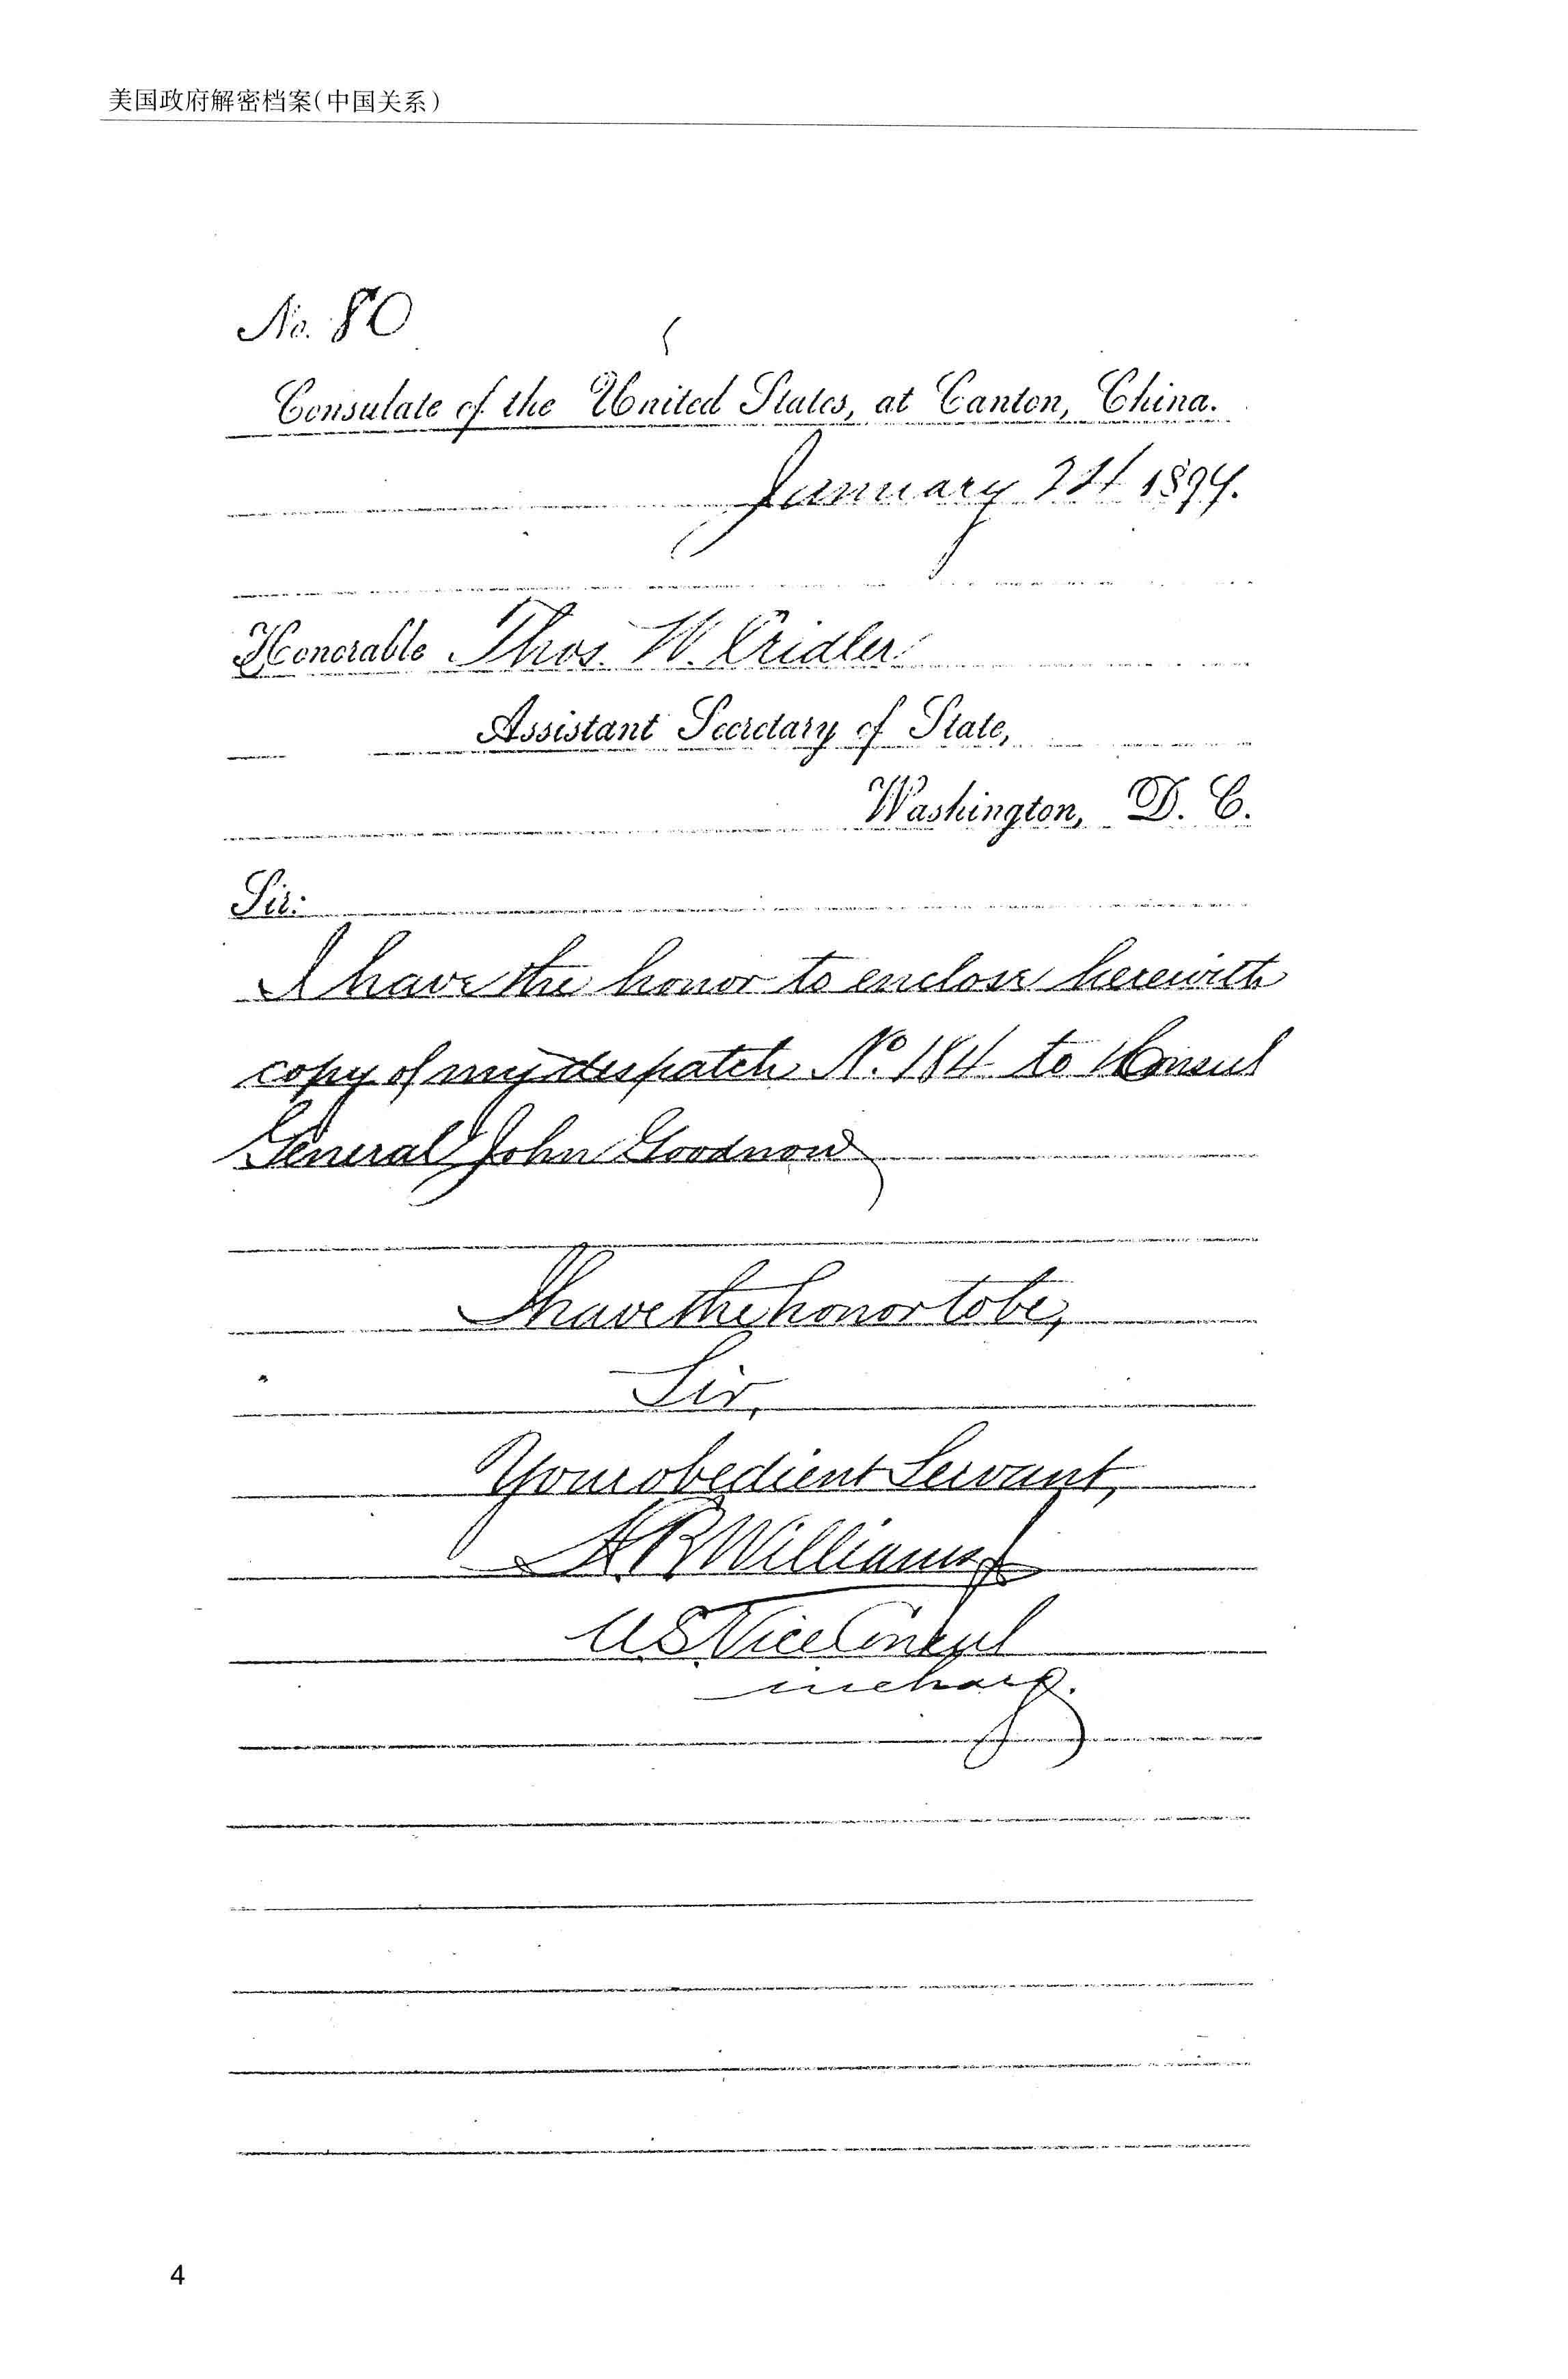 美国政府解密档案(中国关系)
No. 80
Consulate of the United States, at Canton, China.
January 1899.
Honorable Thos. W. Cridler
Assistant Secretary of State,
Washington, D. C.
Sir:
I have the honor to enclose herewith
copy of my despatch No. 184 to Consul
General John Goodnow
I have the honor to be,
Sir,
Your obedient Servant,
Williams
U.S. Vice Consul
in charge.
4